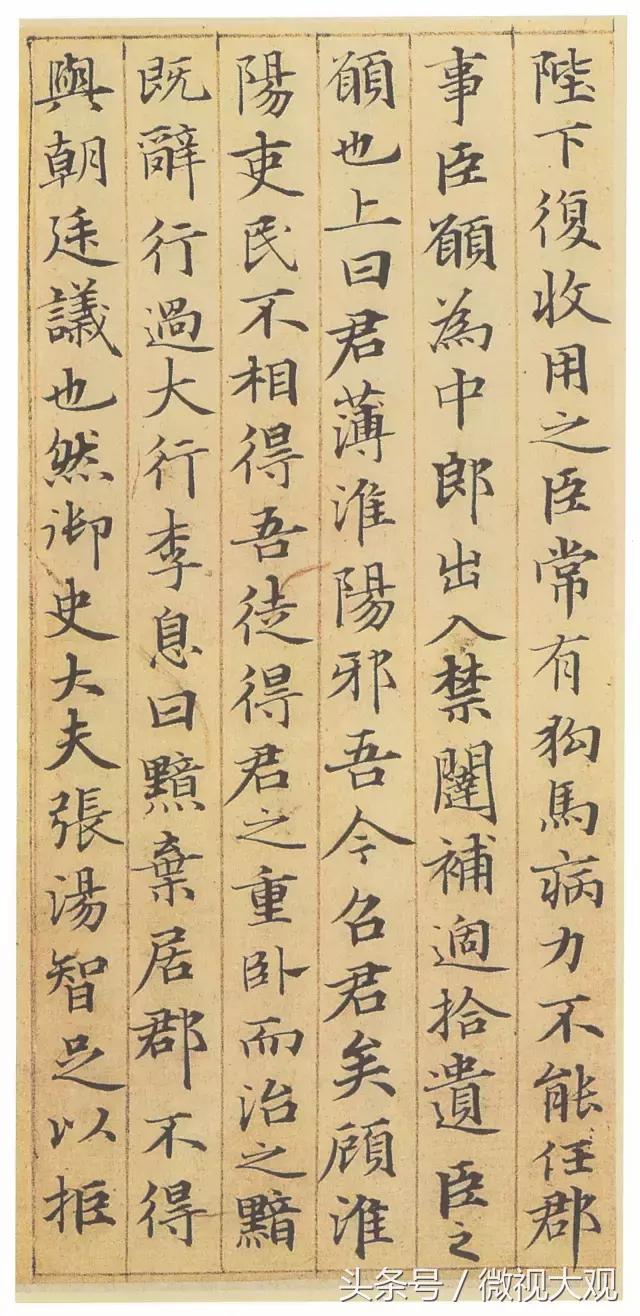 陛下復收用之臣常有狗馬病力不能任郡
事臣願為中郎出入禁闥補過拾遺臣之
願也上曰君薄淮陽邪吾今召君矣顧淮
陽吏民不相得吾徒得君之重卧而治之黯
既辭行過大行李息曰黯棄居郡不得
與朝廷議也然御史大夫張湯智足以拒
头条号 / 微视大观